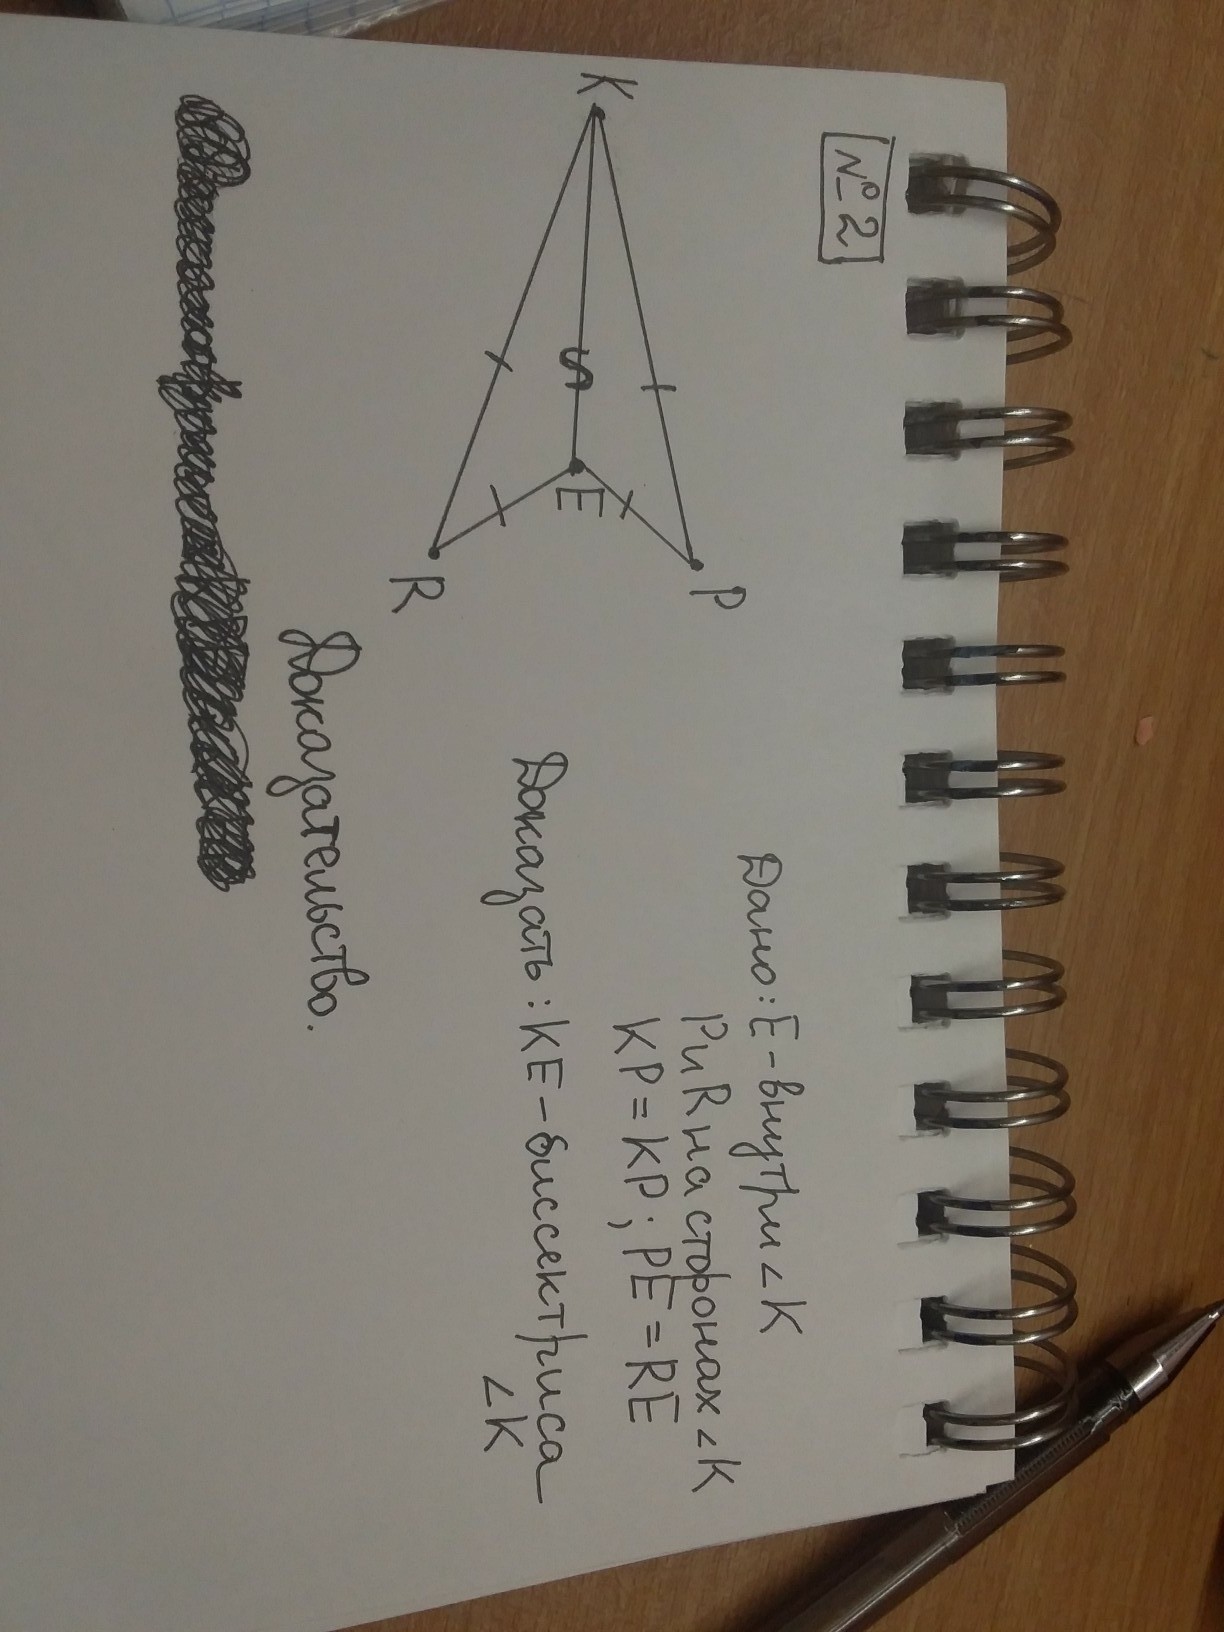 №2
K
P
E
R
Дано: E - внутри <K
P и R на сторонах <K
KP = KP; PE = RE
Доказать: KE - биссектриса
<K
Доказательство.